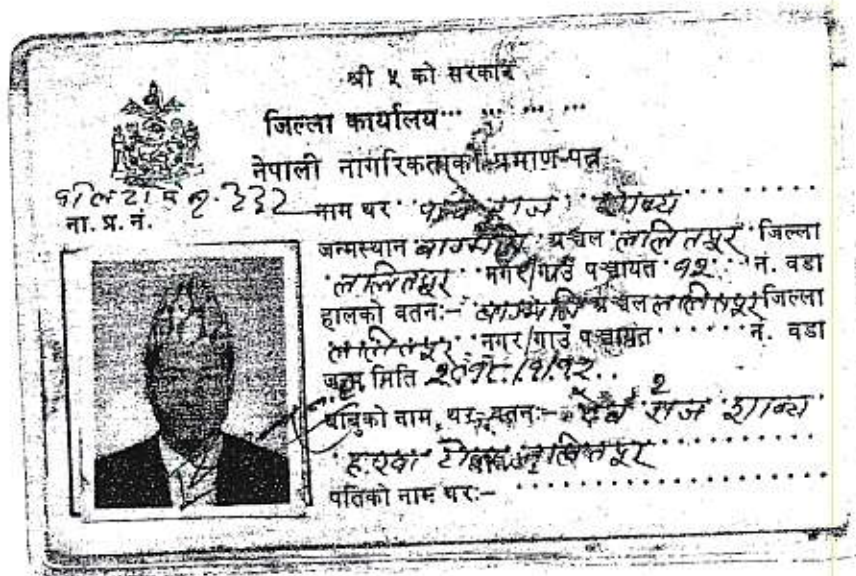 श्री ५ को सरकार
जिल्ला कार्यालय
नेपाली नागरिकताको प्रमाण-पत्र
ना. प्र. नं.
नाम थर राज शाक्य
जन्मस्थान बाग्मती अञ्चल ललितपूर जिल्ला
ललितपूर नगर/गाउँ पञ्चायत १२ नं. वडा
हालको वतनः- बाग्मति अञ्चल ललितपूर जिल्ला
ललितपूर नगर/गाउँ पञ्चायत नं. वडा
जन्म मिति
बाबुको नाम, थर, वतनः- राज शाक्य
टोल ललितपूर
पतिको नाम थरः-